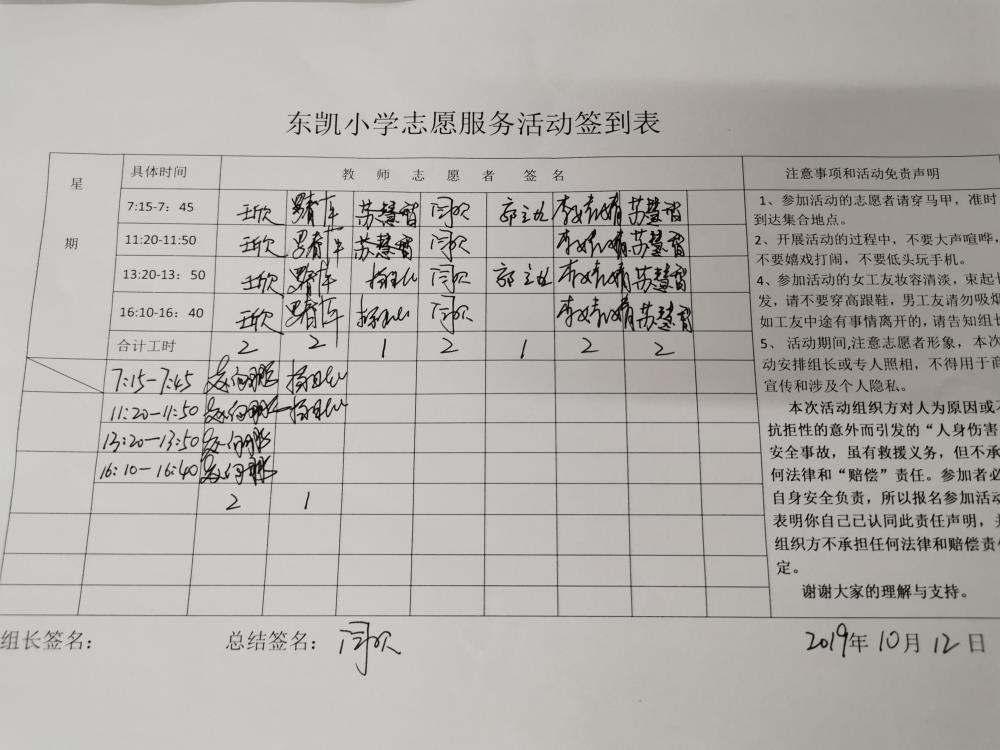 东凯小学志愿服务活动签到表
星期 具体时间 教师志愿者签名 注意事项和活动免责声明
7:15-7:45 王欣 苏慧霞 闫欢 苏慧霞
11:20-11:50 王欣 苏慧霞 闫欢 苏慧霞
13:20-13:50 王欣 闫欢 苏慧霞
16:10-16:40 王欣 闫欢 苏慧霞
合计工时 2 2 1 2 1 2 2
7:15-7:45
11:20-11:50
13:20-13:50
16:10-16:40
2 1
1、参加活动的志愿者请穿马甲，准时
到达集合地点。
2、开展活动的过程中，不要大声喧哗，
不要嬉戏打闹，不要低头玩手机。
4、参加活动的女工友妆容清淡，束起长
发，请不要穿高跟鞋，男工友请勿吸烟
如工友中途有事情离开的，请告知组长
5、活动期间,注意志愿者形象，本次
动安排组长或专人照相，不得用于商
宣传和涉及个人隐私。
本次活动组织方对人为原因或不
抗拒性的意外而引发的“人身伤害
安全事故，虽有救援义务，但不承
何法律和“赔偿”责任。参加者必
自身安全负责，所以报名参加活动
表明你自己已认同此责任声明，并
组织方不承担任何法律和赔偿责任
定。
谢谢大家的理解与支持。
组长签名： 总结签名： 闫欢 2019年10月12日